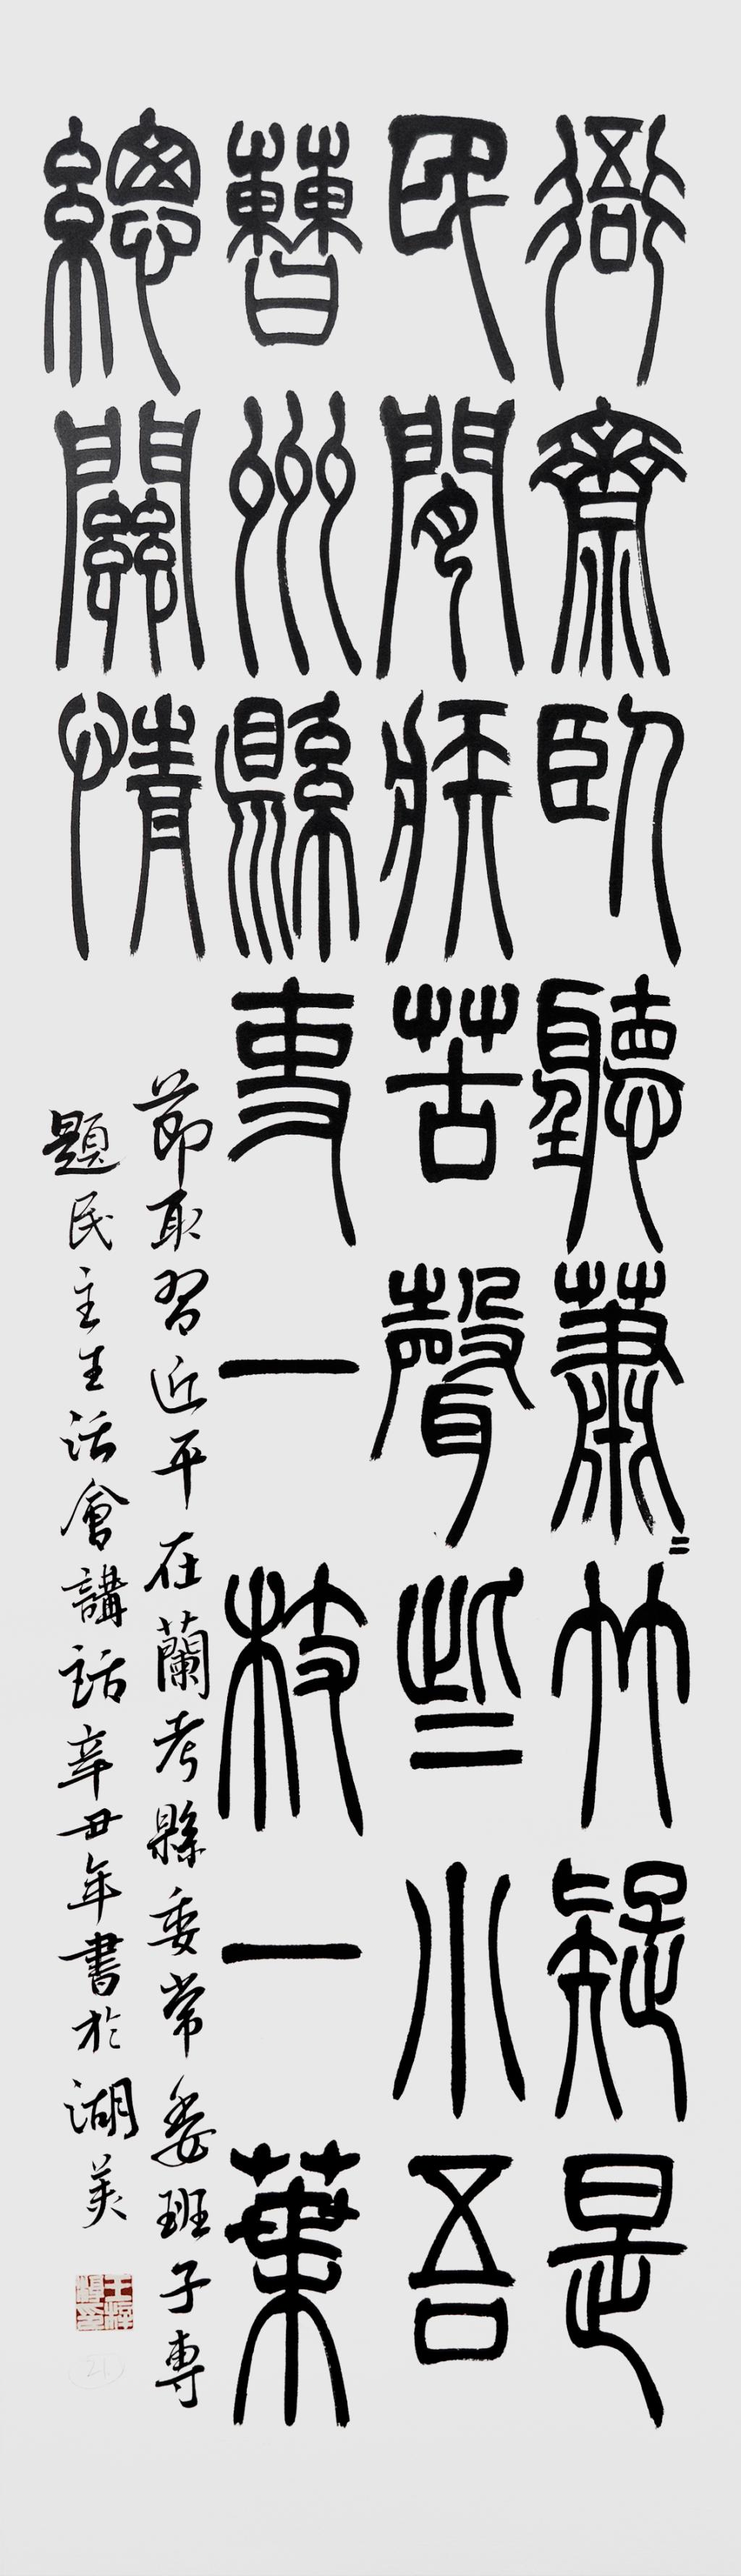 衙齋臥聽蕭〻竹疑是
民間疾苦聲些小吾
曹州縣吏一枝一葉
總關情
節取習近平在蘭考縣委常委班子專
題民主生活會講話辛丑年書於湖美